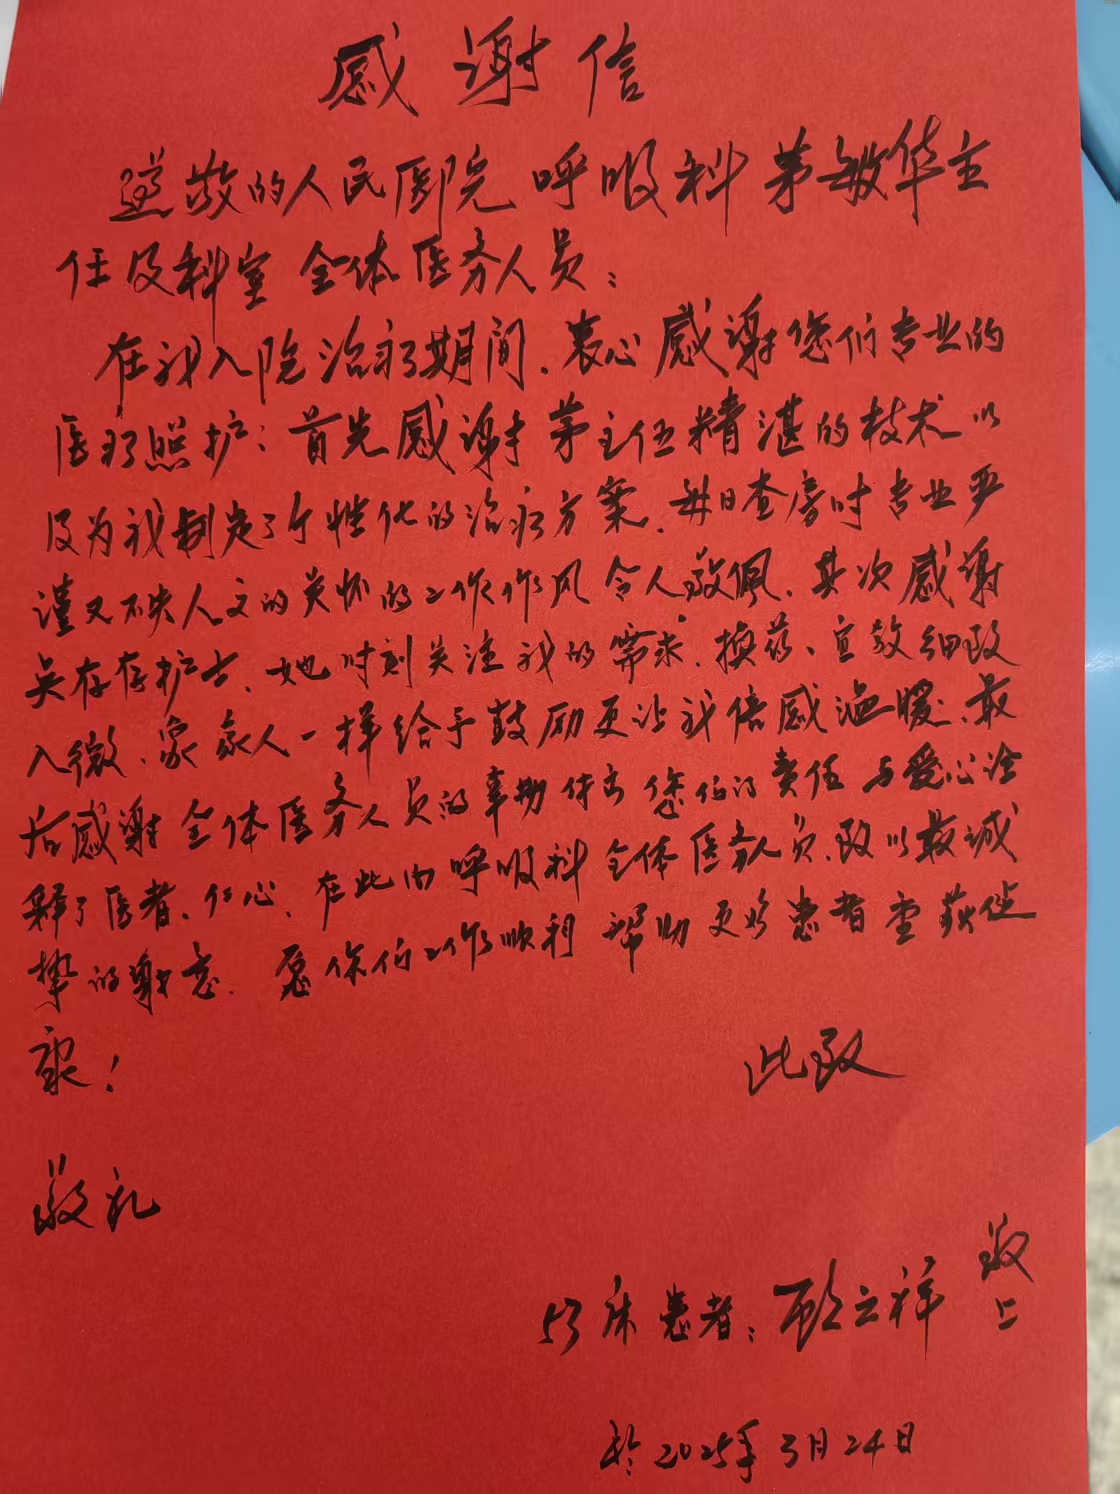 感谢信
尊敬的人民医院 呼吸科 茅敏华主
任及科室 全体医务人员：
在我入院治疗期间，衷心感谢您们专业的
医疗照护：首先感谢茅主任精湛的技术以
及为我制定了个性化的治疗方案，每日查房时专业严
谨又不失人文的关怀的工作作风令人敬佩，其次感谢
吴存存护士，她时刻关注我的需求，换药、宣教细致
入微，象家人一样给予鼓励更让我倍感温暖，最
后感谢全体医务人员的辛勤付出 您们的责任与爱心诠
释了医者，仁心，在此向呼吸科全体医务人员，致以最诚
挚的谢意，愿你们工作顺利 帮助更多患者重获健
康！
此致
敬礼
53床患者：顾云祥 敬上
于2025年3月24日